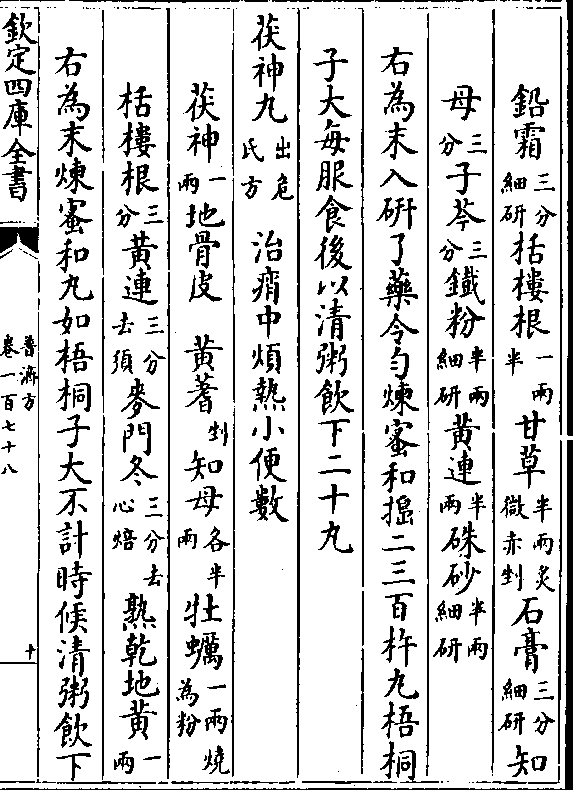 鉛霜三分細研栝樓根一兩半甘草半兩炙微赤剉石膏三分細研知
母三分子芩三分鐵粉半兩細研黃連半兩硃砂半兩細研
右為末入研了藥令勻煉蜜和搗二三百杵丸梧桐
子大每服食後以清粥飲下二十丸
茯神丸出危氏方 治痟中煩熱小便數
茯神一兩地骨皮 黃蓍剉知母各半兩牡蠣一兩燒為粉
栝樓根三分黃連三分去須麥門冬三分去心焙熟乾地黃一兩
右為末煉蜜和丸如梧桐子大不計時候清粥飲下
欽定四庫全書
普濟方
卷一百七十八
十